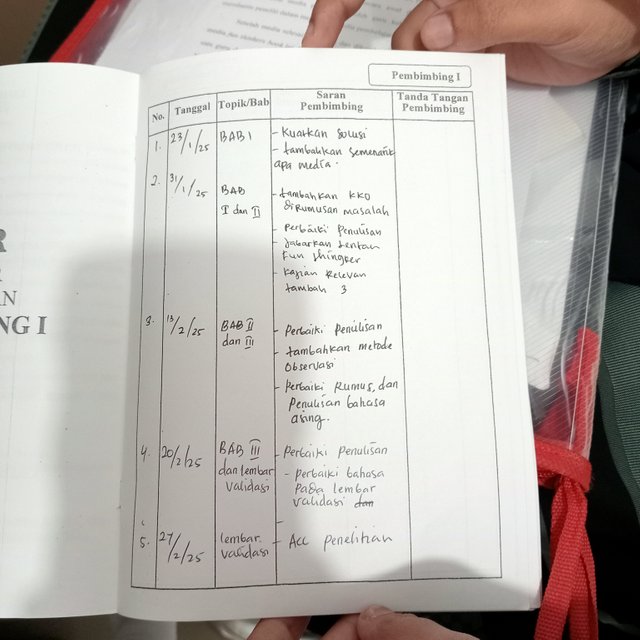 Pembimbing I
No. Tanggal Topik/Bab Saran Pembimbing Tanda Tangan Pembimbing
1. 23/1/25 BAB I - Kuatkan solusi
- tambahkan semenarik
apa media.
2. 31/1/25 BAB - tambahkan KKO
I dan II dirumusan masalah
- Perbaiki Penulisan
- Jabarkan tentan
Fun thingker
- Kajian Relevan
tambah 3
3. 13/2/25 BAB II - Perbaiki Penulisan
dan III - tambahkan metode
Observasi
- Perbaiki Rumus, dan
Penulisan bahasa
asing.
4. 20/2/25 BAB III - Perbaiki Penulisan
dan lembar - perbaiki bahasa
validasi pada lembar
validasi dan
5. 27/2/25 lembar - Acc penelitian
validasi
R
R
AN
NG I